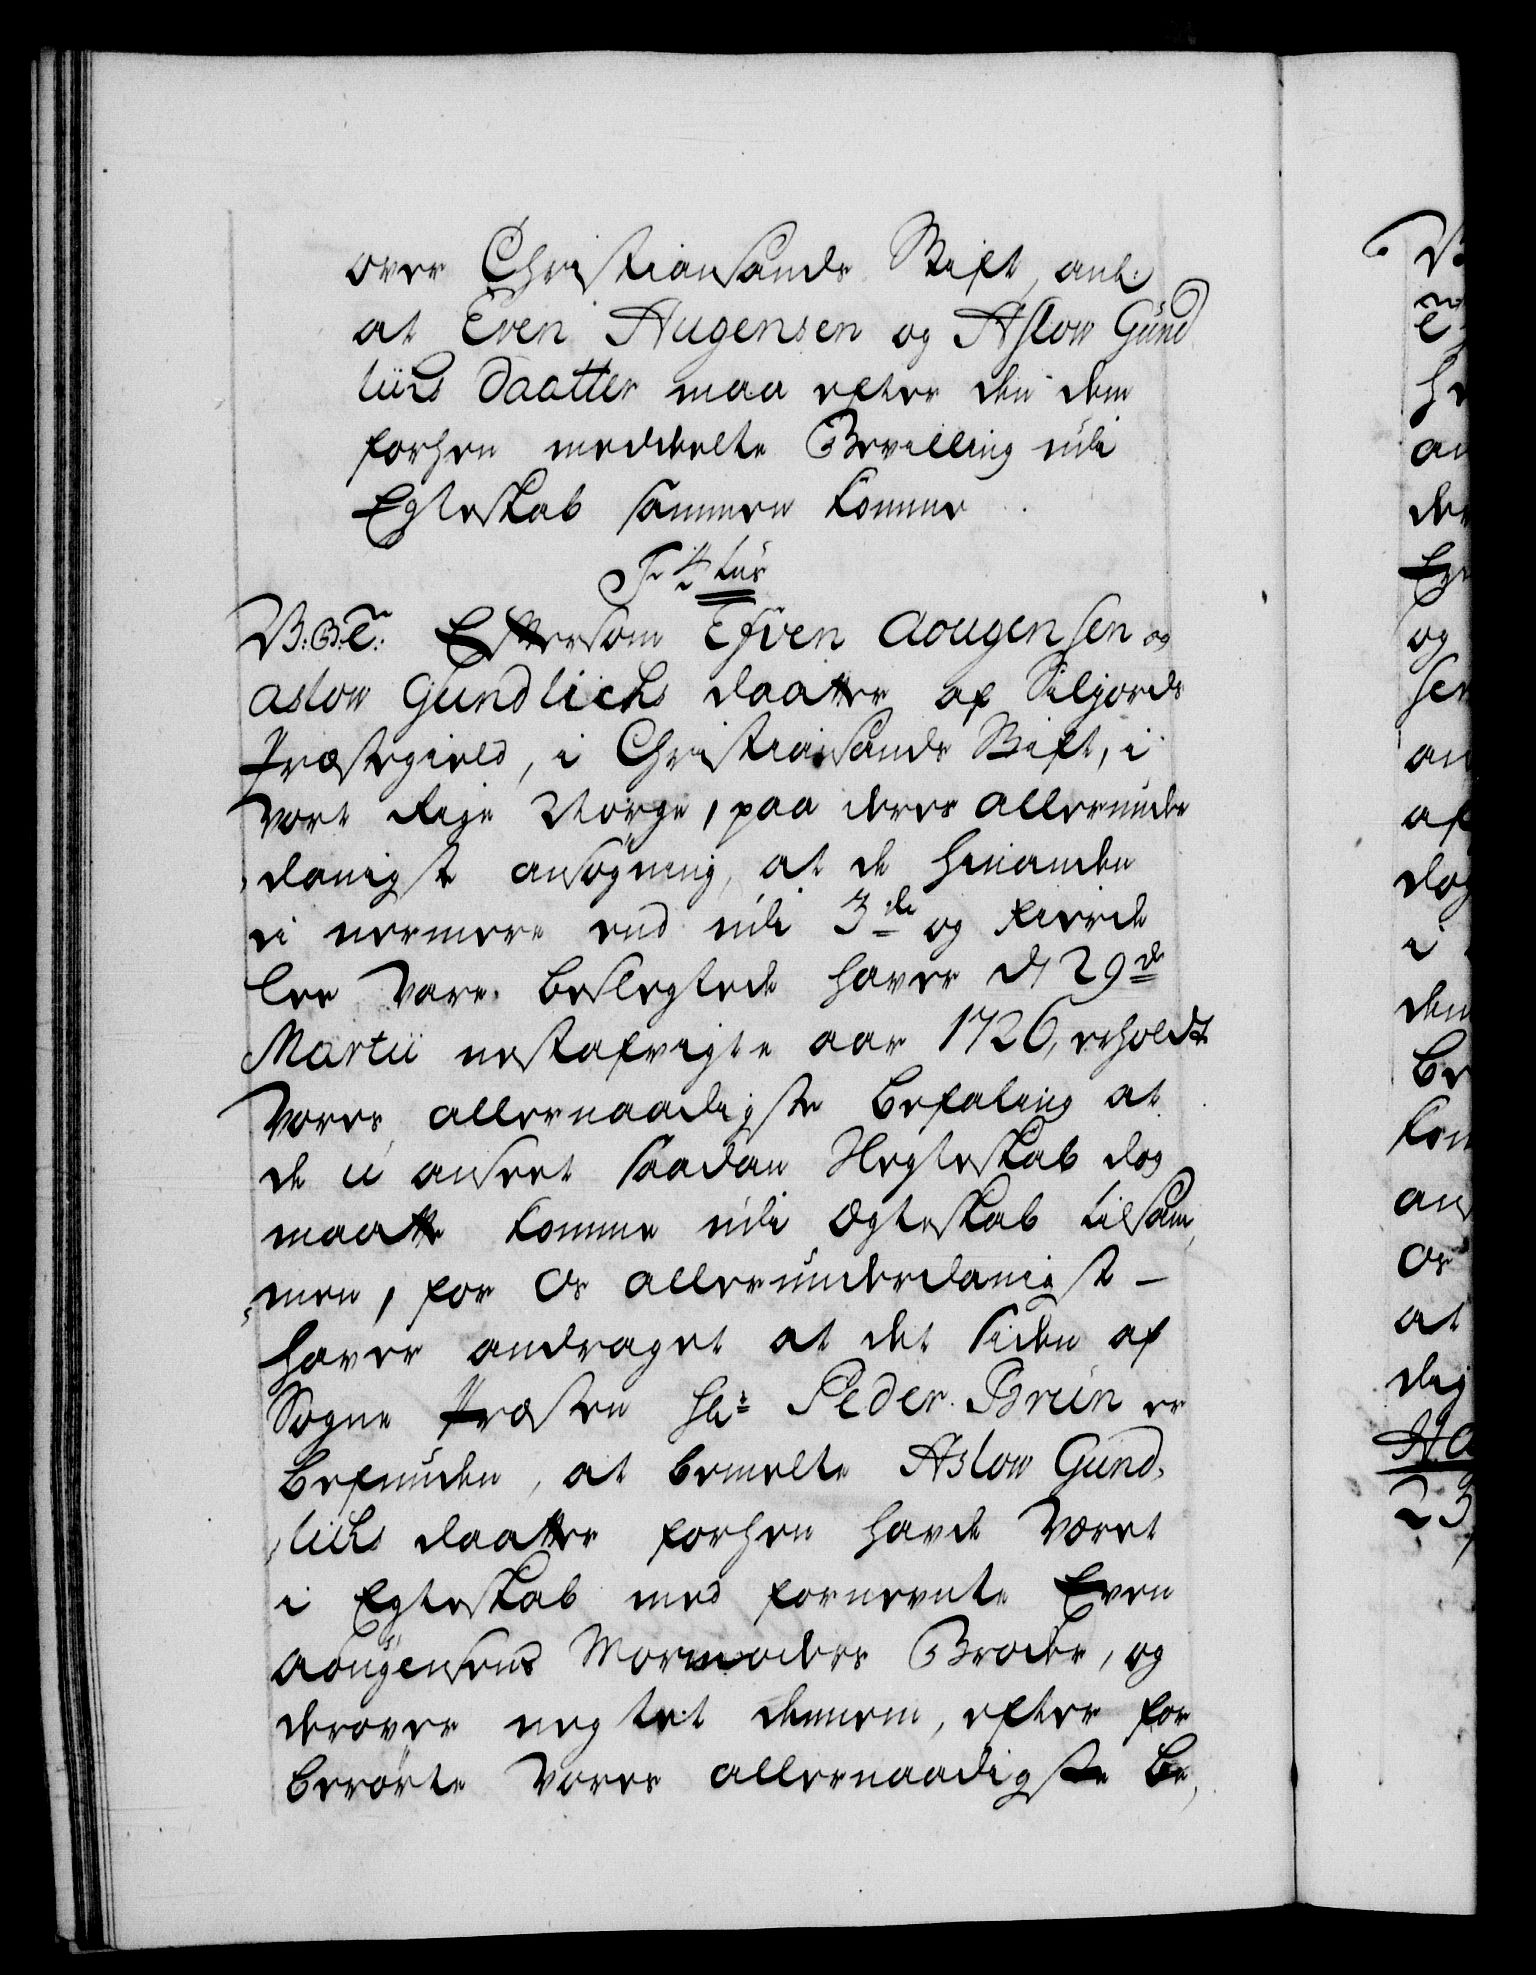 over Christiansands Stift, anl:
at Even Augensen og Aslow Gund
lichs daatter maa efter den dem
forhen meddeelte Bevilling udi
Egteskab sammen komme
V.G.T. Eftersom Efven Aougensen og
Aslow Gundlichs daatter af Siljords
Præstegield, i Christiansands Stift, i
Vort Rige Norge, paa deres allerunder
danigst ansøgning, at de hinanden
ei nermere end udi 3de og fierde
Lee vare beslegtede haver d 29de
Martii nestafvigte aar 1726, erholdt
Vores allernaadigste Befaling at
de u anseet saadan Slegteskab dog
maatte komme udi Ægteskab tilsam,
men, for Os allerunderdanigst
haver andraget at det siden af
Sogne Præsten Hr Peder Brun er
befunden, at bemelte Aslow Gund,
lichs daatter forhen havde været
i Egteskab med fornevnte Even
Aougensens Mormoders Broder, og
derover negtet dennem, efter for
berørte Vores allernaadigste Be,